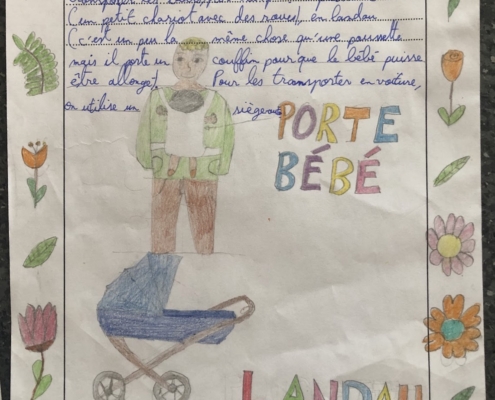 (un petit chariot avec des roues), en landau
(c'est un peu la même chose qu'une poussette
mais il porte un couffin pour que le bébé puisse
être allongé). Pour les transporter en voiture,
on utilise un siège auto
PORTE
BÉBÉ
LANDAU